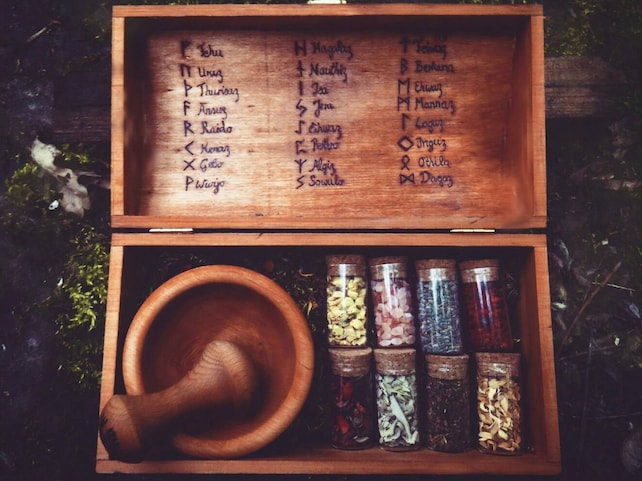 ᚠ Fehu
ᚢ Uruz
ᚦ Thurisaz
ᚨ Ansuz
ᚱ Raido
ᚲ Kenaz
ᚷ Gebo
ᚹ Wunjo
ᚺ Hagalaz
ᚾ Nauthiz
ᛁ Isa
ᛃ Jera
ᛇ Eihwaz
ᛈ Pertho
ᛉ Algiz
ᛊ Sowulo
ᛏ Teiwaz
ᛒ Berkana
ᛖ Ehwaz
ᛗ Mannaz
ᛚ Laguz
ᛜ Inguz
ᛟ Othila
ᛞ Dagaz